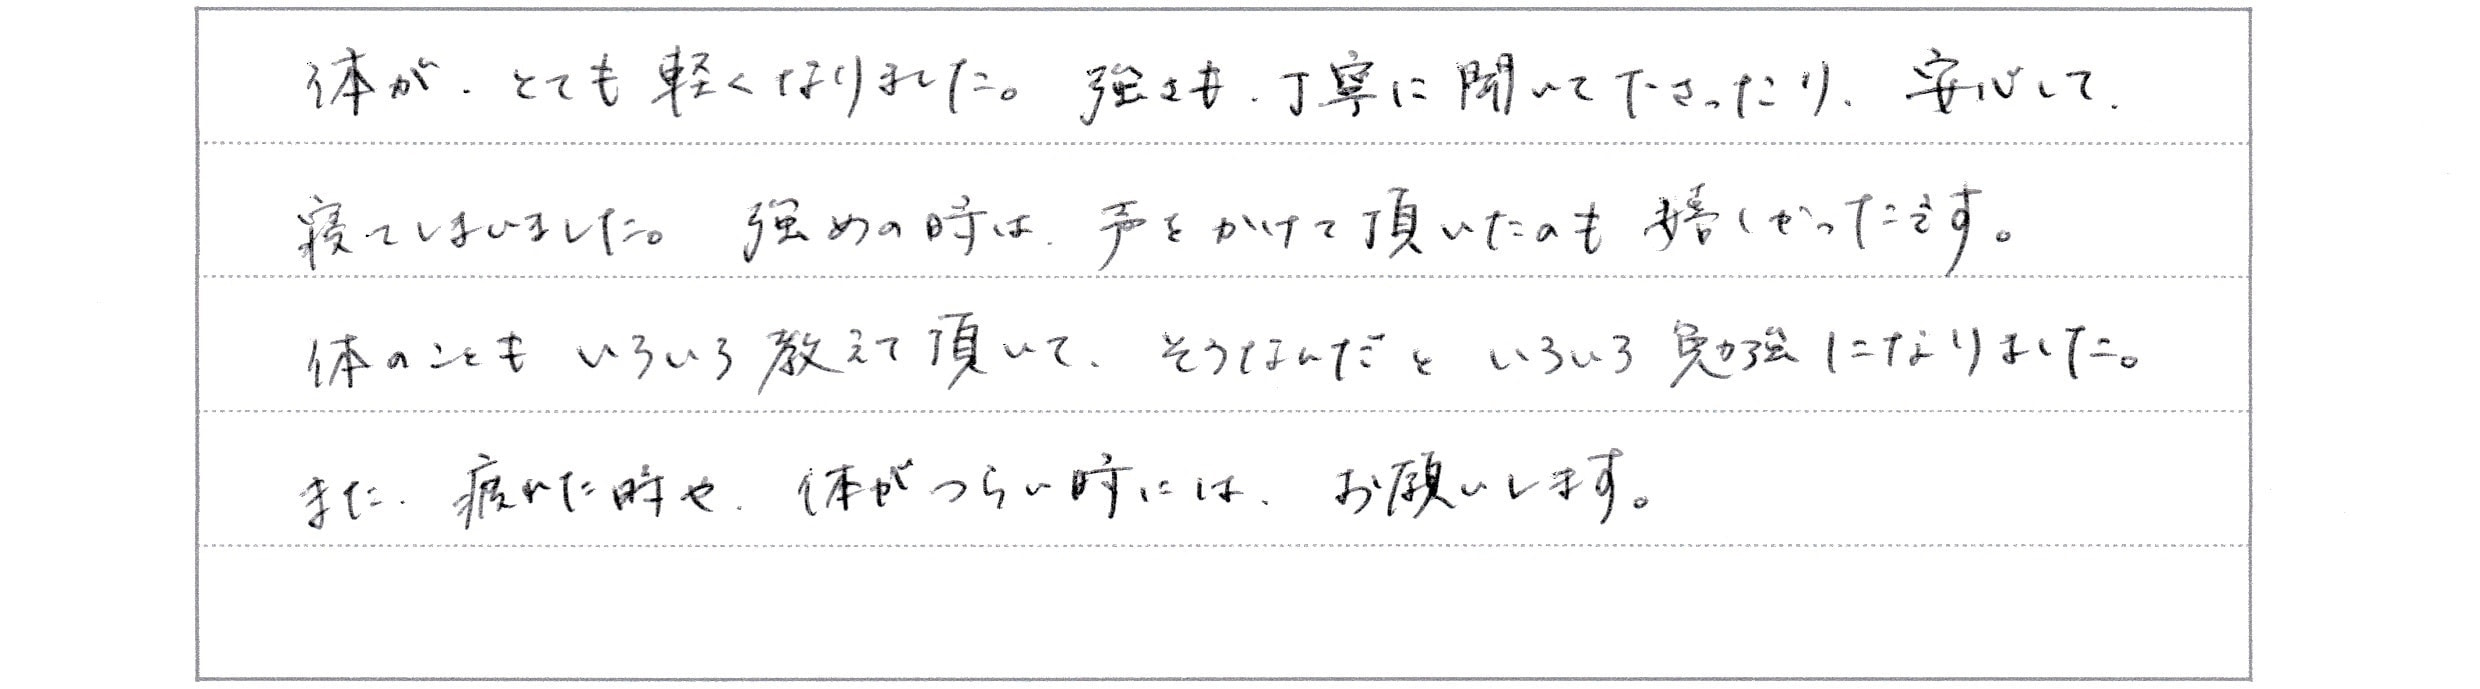 体が、とても軽くなりました。強さも、丁寧に聞いて下さったり、安心して、
寝てしまいました。強めの時は、声をかけて頂いたのも嬉しかったです。
体のこともいろいろ教えて頂いて、そうなんだといろいろ勉強になりました。
また、疲れた時や、体がつらい時には、お願いします。